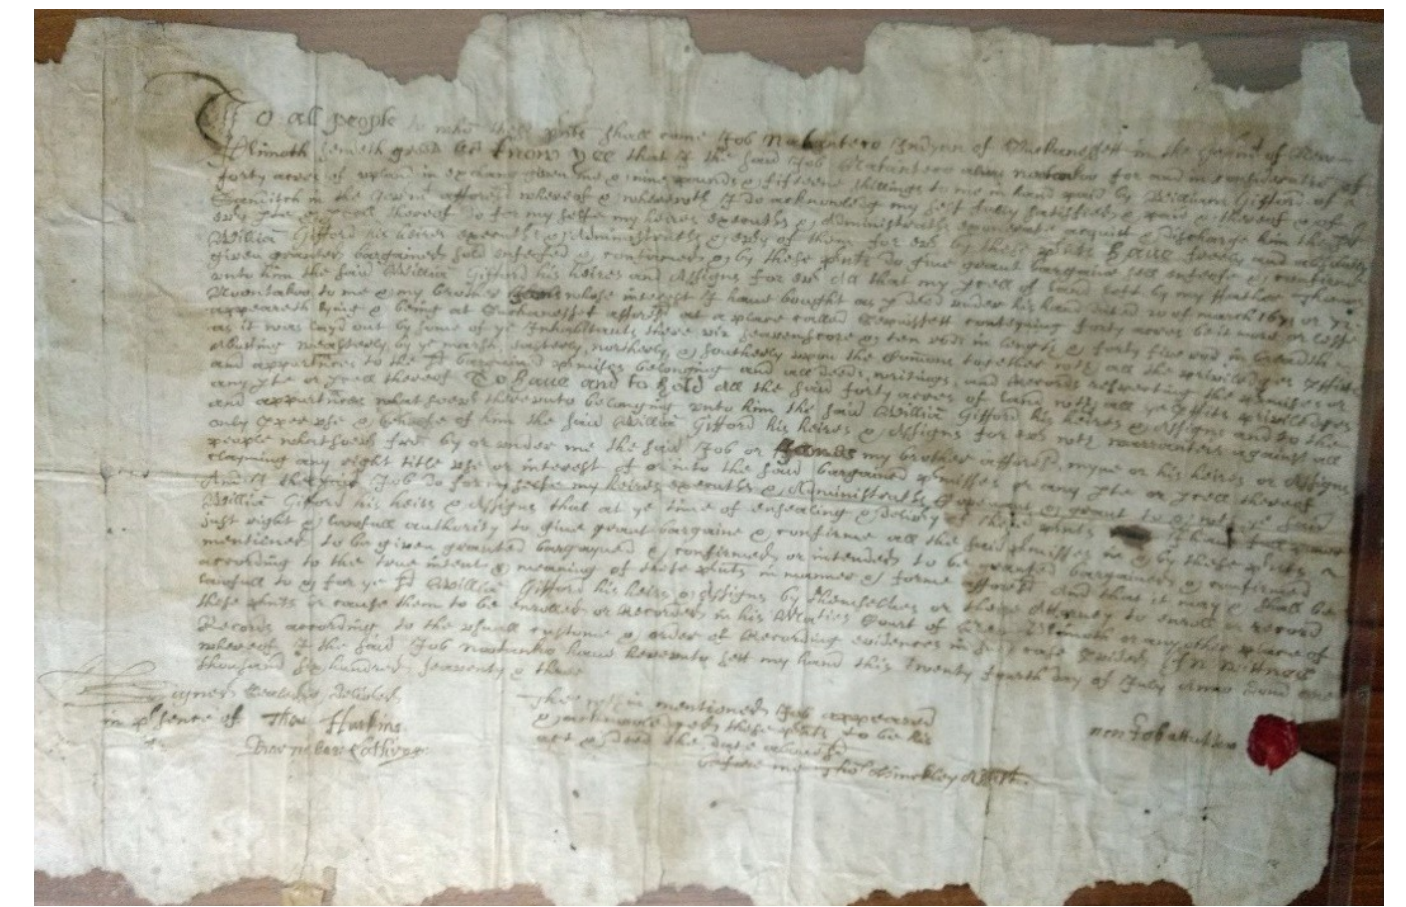 To all people to whō these pnts shall come Job Indyan of in the of New
Plimoth sendeth greet &c Know yee that I the said Job alius for and in consideratiō of
forty acres of upland in exchang given me & nine pounds & fifteene shillings to me in hand paid by William Gifford of
Sandwich in the afforesd whereof & wherewth I do acknowledg my selfe fully satisfied & paid & thereof & of
evy pte & pcell thereof do for my selfe my heires executrs & Administratrs exonerate acquitt & discharge him the sd
Williā Gifford his heires executrs & Administratrs & evy of them for evr by these pnts Have freely and absolutely
given granted bargained sold enfeofed & confirmed & by these pnts do give grant bargaine sell enfeofe & confirme
unto him the said Williā Gifford his heires and Assigns for evr all that my pcell of land left by my ffather
to me & my brother whose interest I have bought as p deed under his hand dated 20 of march 167
appeareth lying & being at afforesd at a place called conteyning forty acres be it more or lesse
as it was layd out by some of ye Inhabitants there viz seavenscore & ten rod in length & forty five rod in breadth
abutting westerly by ye marsh, easterly, northerly, & southerly upon the Cōmons together wth all the priviledges pffits
and appurtnces to the sd bargained pmises belonging and all deeds, writings, and Records respecting the pmises or
any pte or pcell thereof To have and to hold all the said forty acres of land wth all ye pffits priviledges
and appurtnces whatsoevr thereunto belonging unto him the said Williā Gifford his heires & Assigns and to the
only pper use & behoofe of him the said Williā Gifford his heires & Assigns for evr wth warranties against all
people whatsoevr frō by or under me the said Job or James my brother afforesd, myne or his heires or Assigns
claiming any right title use or interest of or into the said bargained pmisses or any pte or pcell thereof
And I the said Job do for my selfe my heires executrs & Administratrs covenant & grant to & wth the said
Williā Gifford his heirs & Assigns that at ye time of ensealing & delivery of these pnts I have full power
just right & lawfull authority to give grant bargaine & confirme all the said pmisses in & by these pnts
mentioned to be given granted bargayned & confirmed or intended to be granted bargained & confirmed
according to the true intent & meaning of these pnts in manner & forme afforesd And that it may & shall be
lawfull to & for ye sd Williā Gifford his heirs & Assigns by themselves or their Attorney to enroll or record
these pnts or cause them to be enrolled or Recorded in his Maties Court of Plimoth or any other place of
Records according to the usuall custome & order of Recording evidences in such case pvided In Wittness
whereof I the said Job have hereunto sett my hand this Twenty fourth day of July Anno Dom one
thousand six hundred seaventy & three
Signed Sealed & Delivered
in psence of Tho: Huckins
Lothrop
The wthin mentioned Job appeared
& acknowledged these pnts to be his
act & deed the date abovesd
before me Tho: Hinckley Assist.